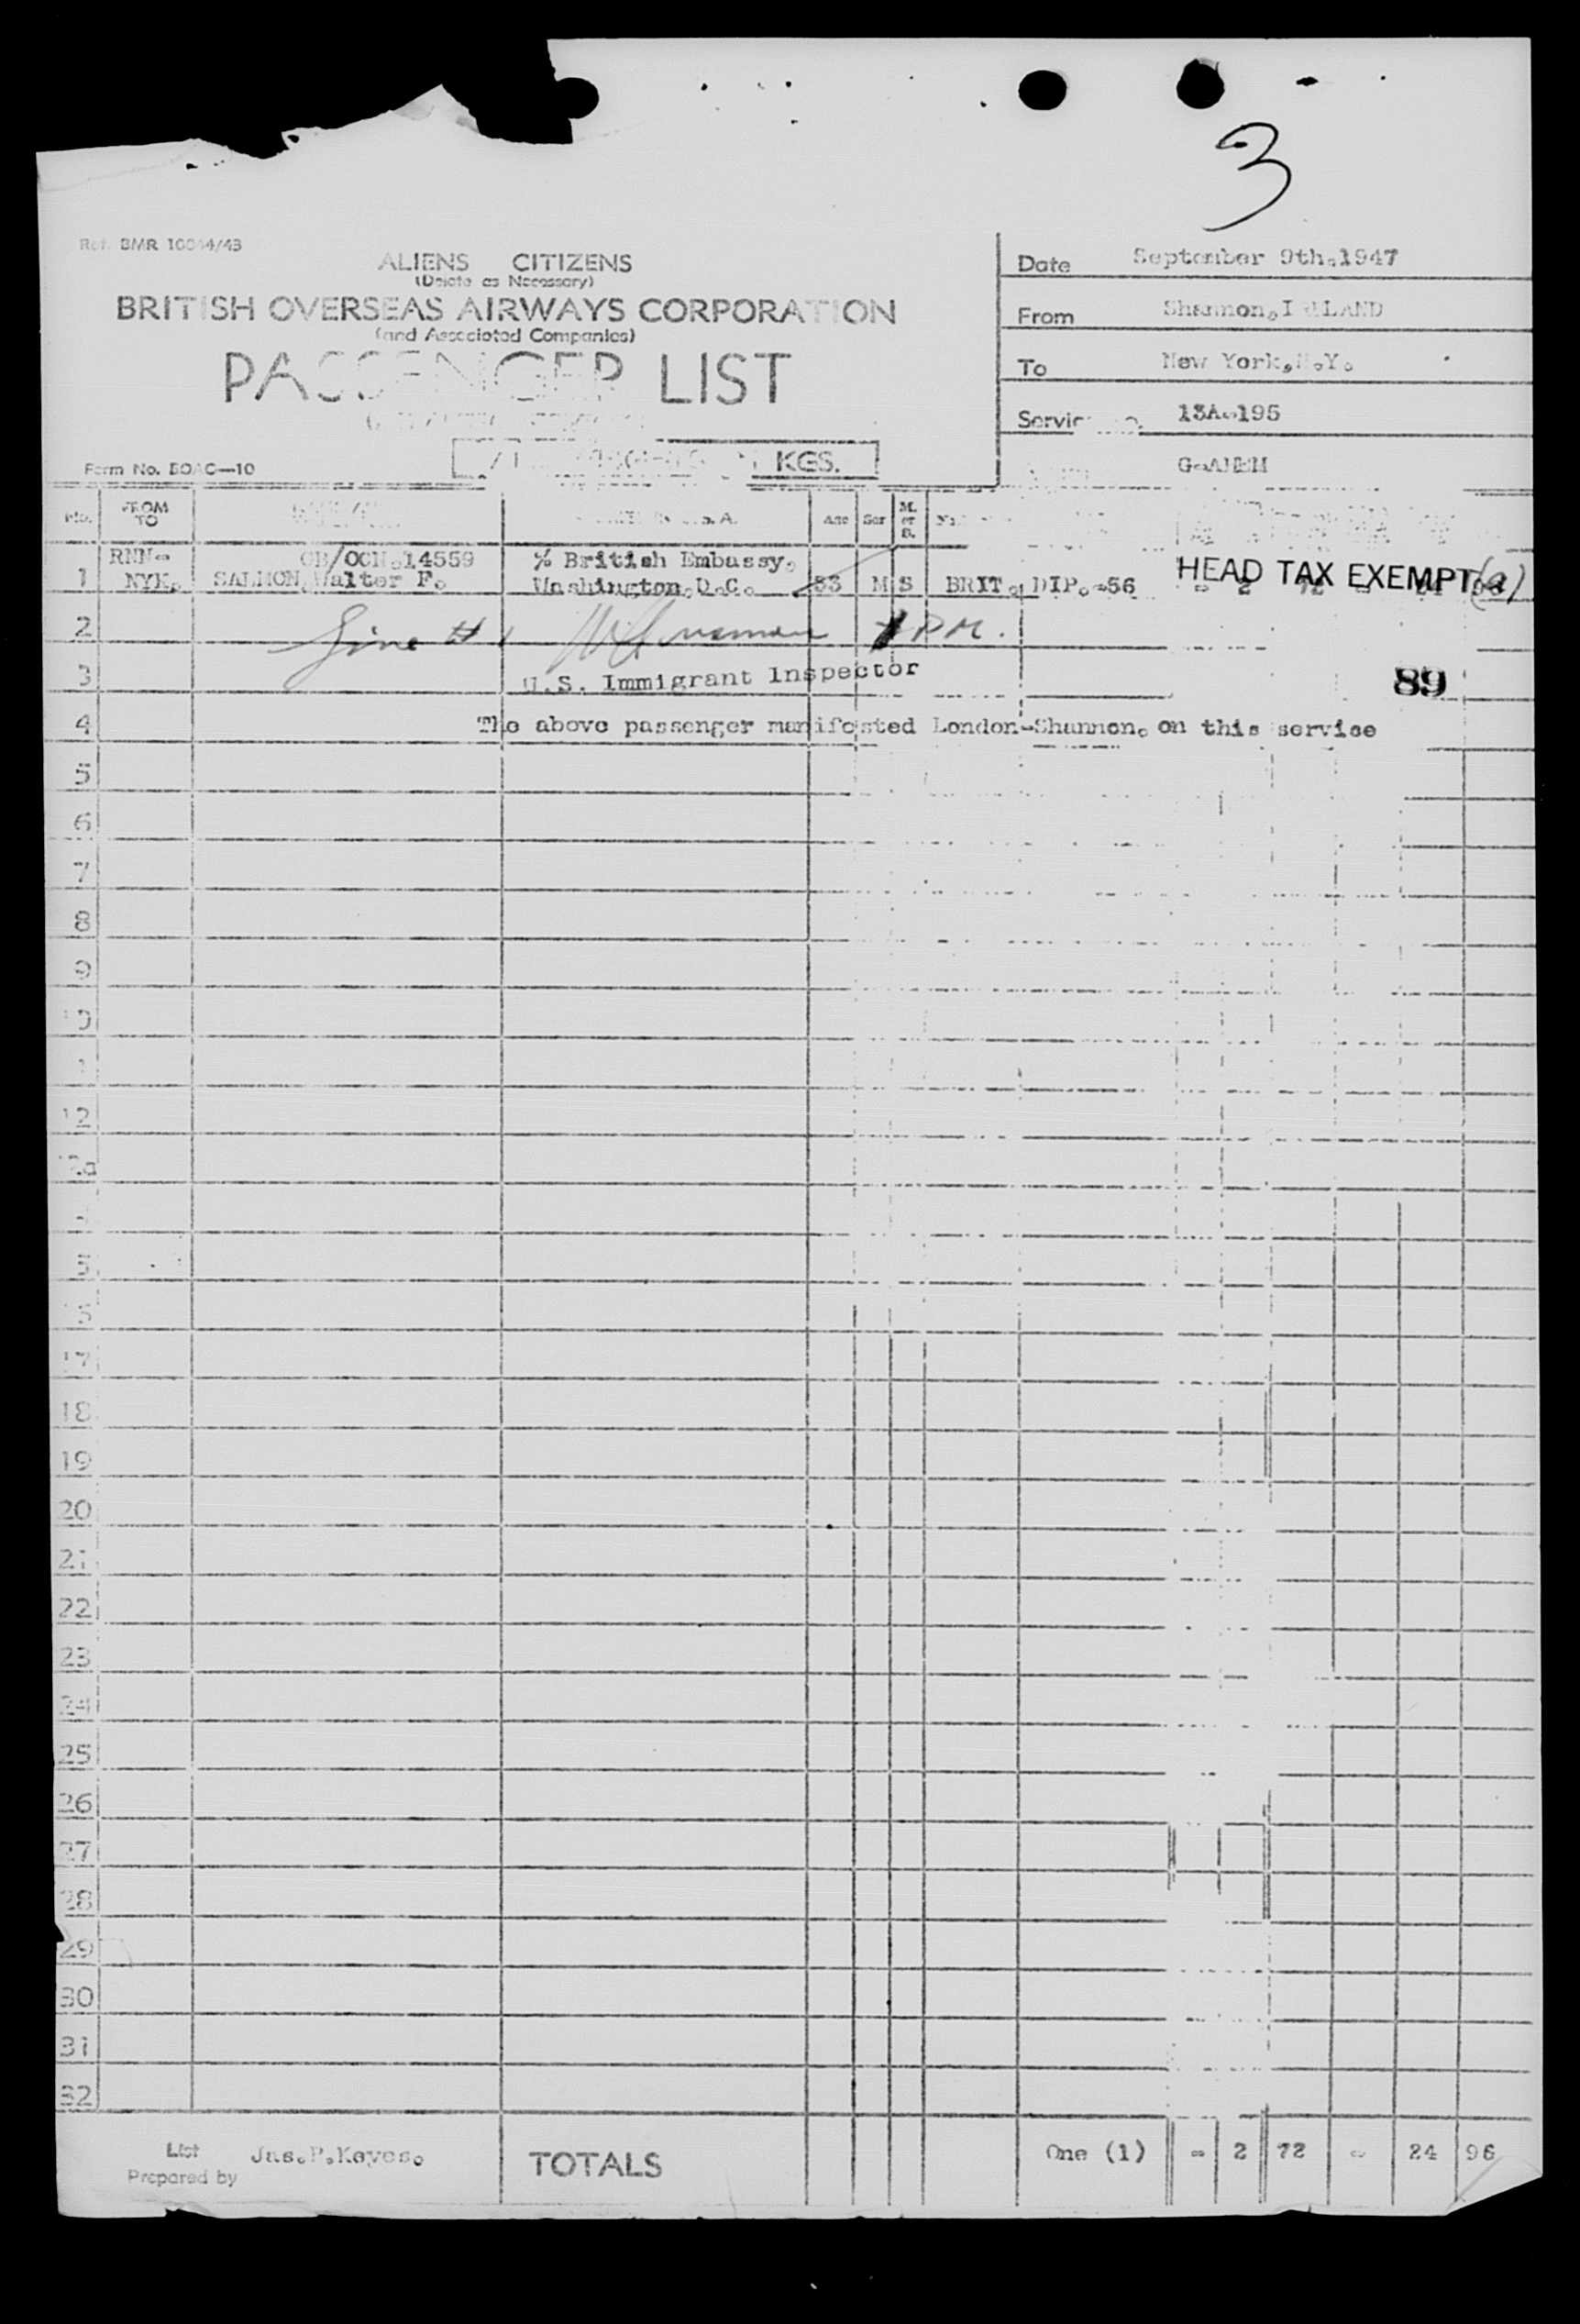 3
Ref. BMR
ALIENS CITIZENS
(Delete as Necessary)
BRITISH OVERSEAS AIRWAYS CORPORATION
(and Associated Companies)
PASSENGER LIST
KGS.
Form No. BOAC—10
Date September 9th.1947
From Shannon, IRELAND
To New York, N.Y.
Service No. 13A.195
No. FROM TO Age Sex M. or S.
1 RNN- NYK. SALMON, Walter F. % British Embassy, Washington,D.C. M S BRIT. DIP.-56
HEAD TAX EXEMPT
2 Line # 1
3 U.S. Immigrant Inspector 89
4 The above passenger manifested London-Shannon. on this service
5
6
7
8
9
10
12
17
18
19
20
21
22
23
24
25
26
27
28
29
30
31
32
List Prepared by Jas.P.Keyes. TOTALS One (1) - 2 72 - 24 96